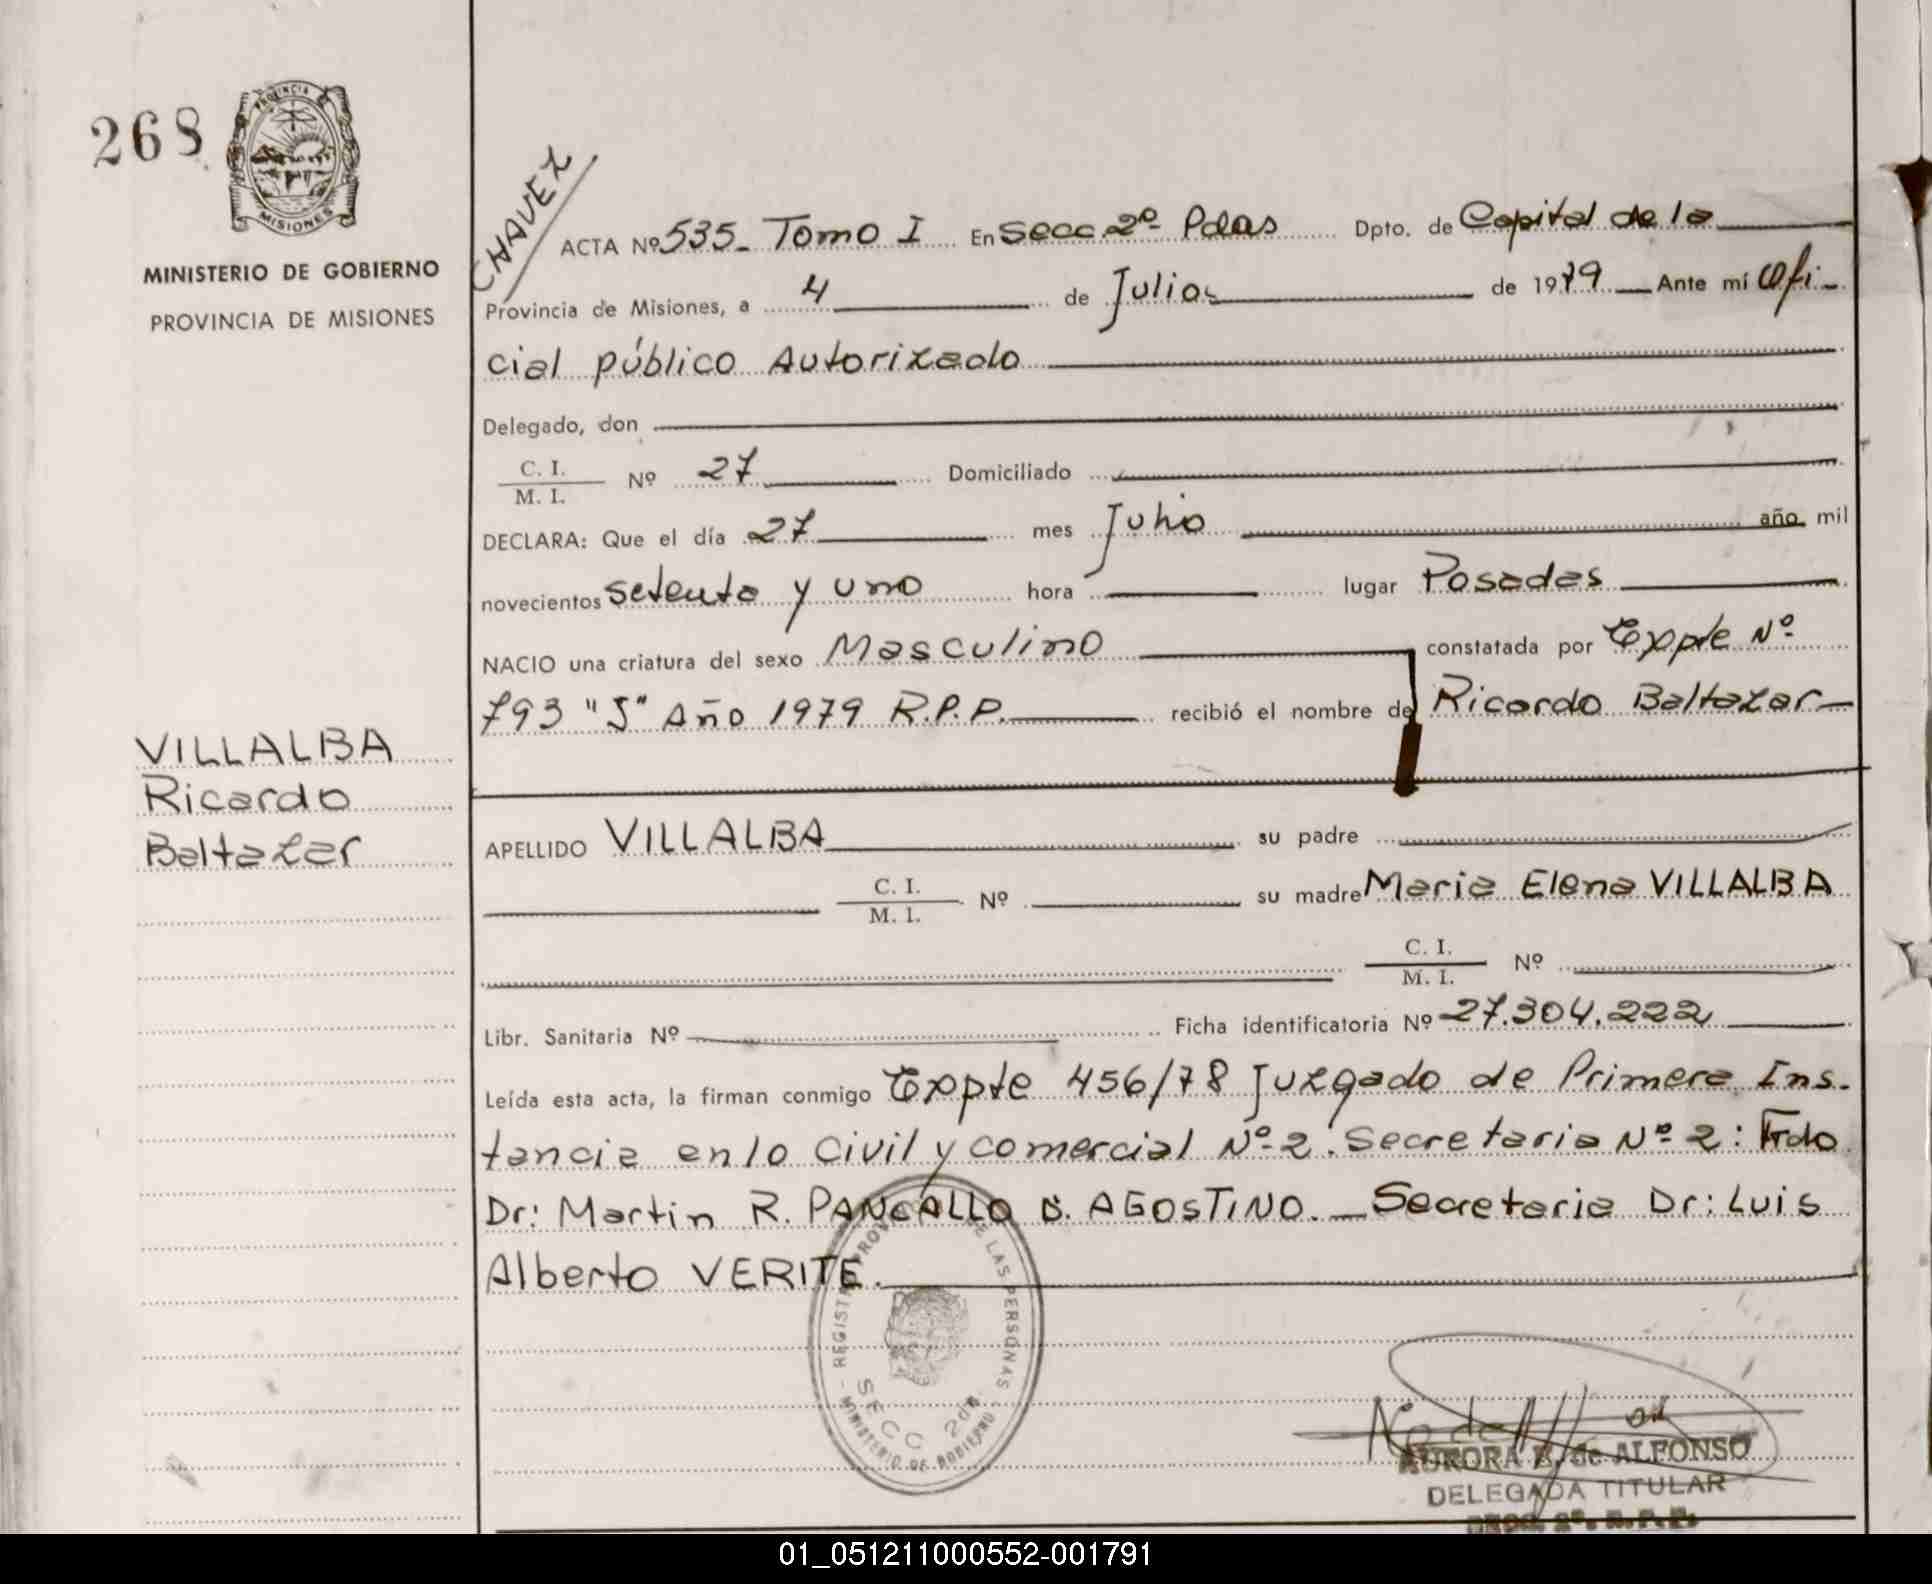 268
PROVINCIA
MISIONES
MINISTERIO DE GOBIERNO
PROVINCIA DE MISIONES
CHAVEZ
ACTA Nº 535_ Tomo I En Secc 2º Pdas Dpto. de Capital de la
Provincia de Misiones, a 4 de Julio de 1979 Ante mí Ofi
cial público Autorizado
Delegado, don
C. I.
M. I. Nº 27 Domiciliado
DECLARA: Que el día 27 mes Julio año mil
novecientos setenta y uno hora lugar Posadas
NACIO una criatura del sexo Masculino constatada por Expte Nº
793 "J" Año 1979 R.P.P. recibió el nombre de Ricardo Baltazar
VILLALBA
Ricardo
Baltazar
APELLIDO VILLALBA su padre
C. I.
M. I. Nº su madre Maria Elena VILLALBA
C. I.
M. I. Nº
Libr. Sanitaria Nº Ficha identificatoria Nº 27.304.222
Leída esta acta, la firman conmigo Expte 456/78 Juzgado de Primera Ins.
tancia en lo Civil y comercial Nº 2. Secretaria Nº 2: Frdo
Dr: Martin R. PANCALLO D. AGOSTINO. _ Secretaria Dr: Luis
Alberto VERITE.
REGISTRO PROV DE LAS PERSONAS
SECC 2da
MINISTERIO DE GOBIERNO
AURORA B. de ALFONSO
DELEGADA TITULAR
2º. R. P. P.
01_051211000552-001791